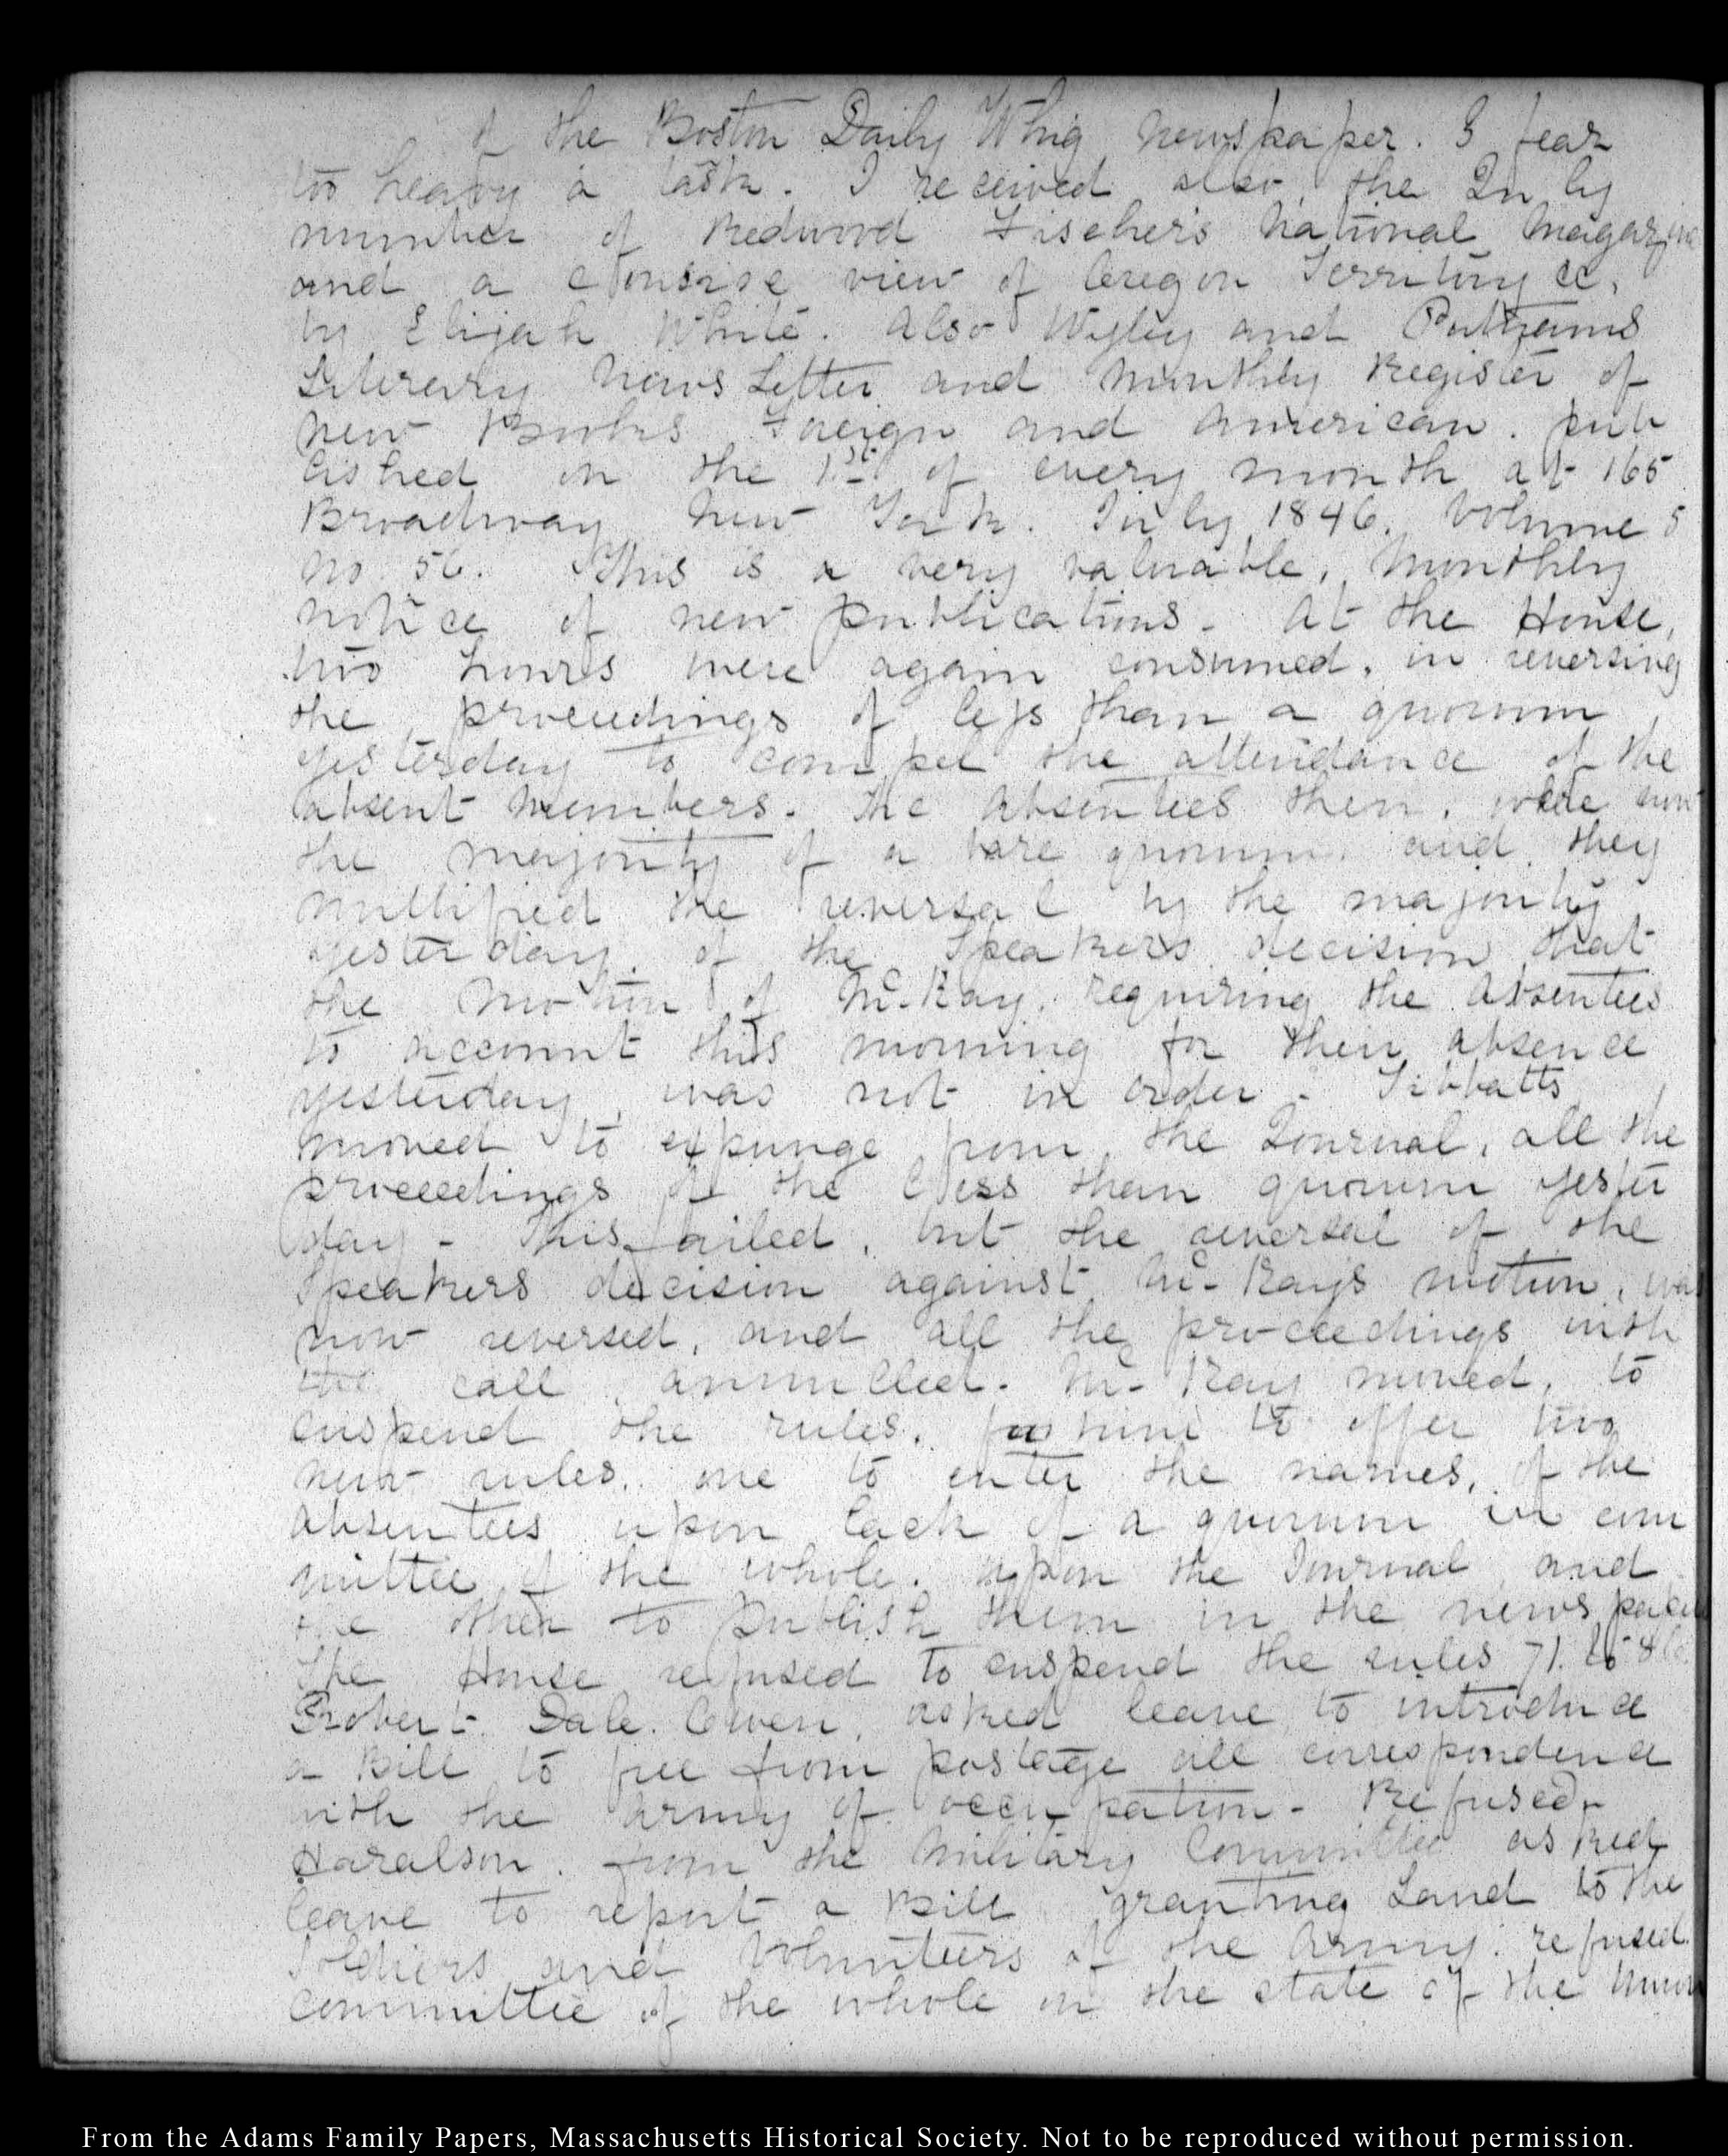 of the Boston Daily Whig newspaper. I fear
too heavy a task. I received also the July
number of Redwood Fischer's National Magazine
and a concise view of Oregon Territory &c.
by Elijah White. Also Wyley and Putnams
Literary News Letter and Monthly Register of
New Books Foreign and American. pub
lished on the 1st of every month at 165
Broadway New York. July 1846. Volume 5
No. 56. This is a very valuable, monthly
notice of new publications. At the House,
two hours were again consumed, in reversing
the proceedings of less than a quorum
yesterday to compel the attendance of the
absent members. The absentees then, were now
the majority of a bare quorum and they
nullified the reversal by the majority
yesterday, of the Speakers decision that
the motion of McKay, requiring the absentees
to account this morning for their absence
yesterday, was not in order - Tibbatts
moved to expunge from the Journal, all the
proceedings of the less than quorum yester
day - This failed, but the reversal of the
Speakers decision against McKays motion, was
now reversed, and all the proceedings with
the call, annulled. McKay moved, to
suspend the rules, for him to offer two
new rules, one to enter the names, of the
absentees upon lack of a quorum in com
mittee of the whole, upon the Journal and
the other to publish them in the newspapers
The House refused to suspend the rules 71. to
Robert Dale Owen, asked leave to introduce
a Bill to free from postage all correspondence
with the army of occupation - Refused.
Haralson from the Military Committee asked
leave to report a Bill granting Land to the
Soldiers and Volunteers of the Army. refused.
Committee of the whole on the state of the Union
From the Adams Family Papers, Massachusetts Historical Society. Not to be reproduced without permission.